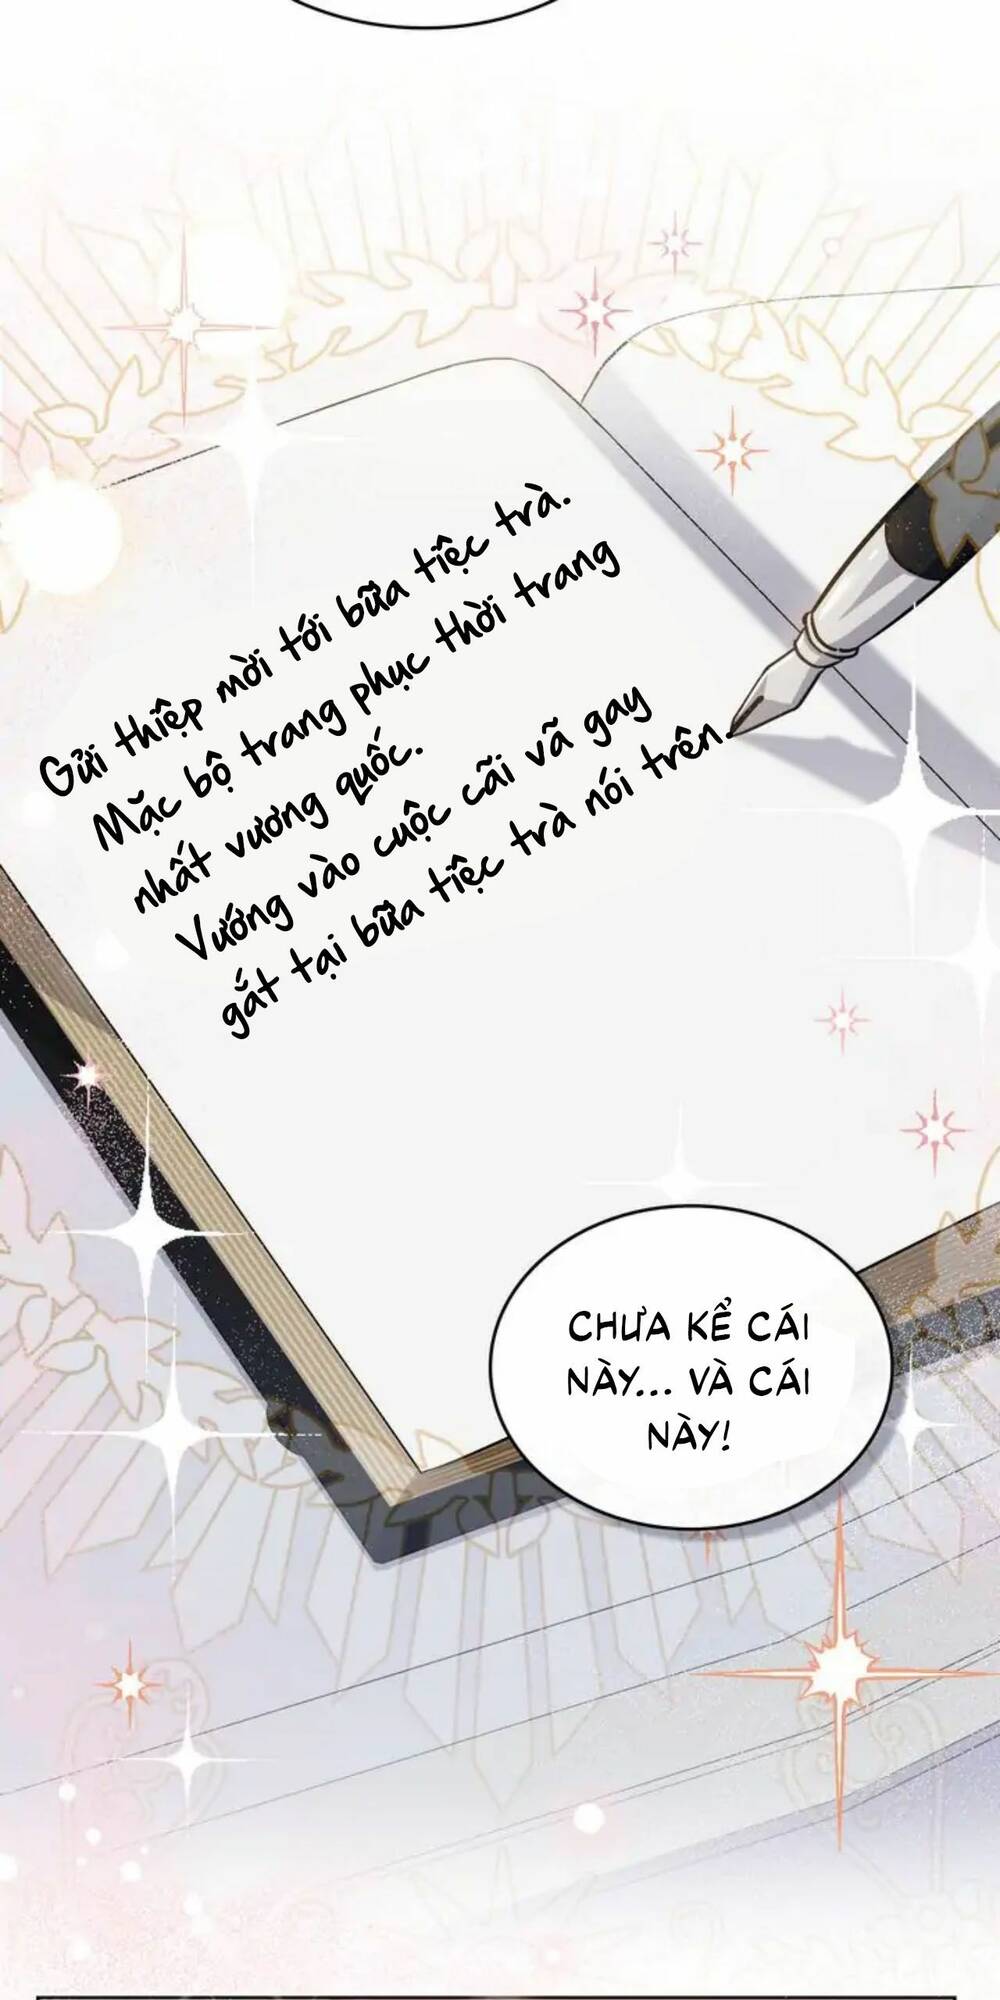 Gửi thiệp mời tới bữa tiệc trà.
Mặc bộ trang phục thời trang
nhất vương quốc.
Vướng vào cuộc cãi vã gay
gắt tại bữa tiệc trà nói trên
CHƯA KỂ CÁI
NÀY... VÀ CÁI
NÀY!